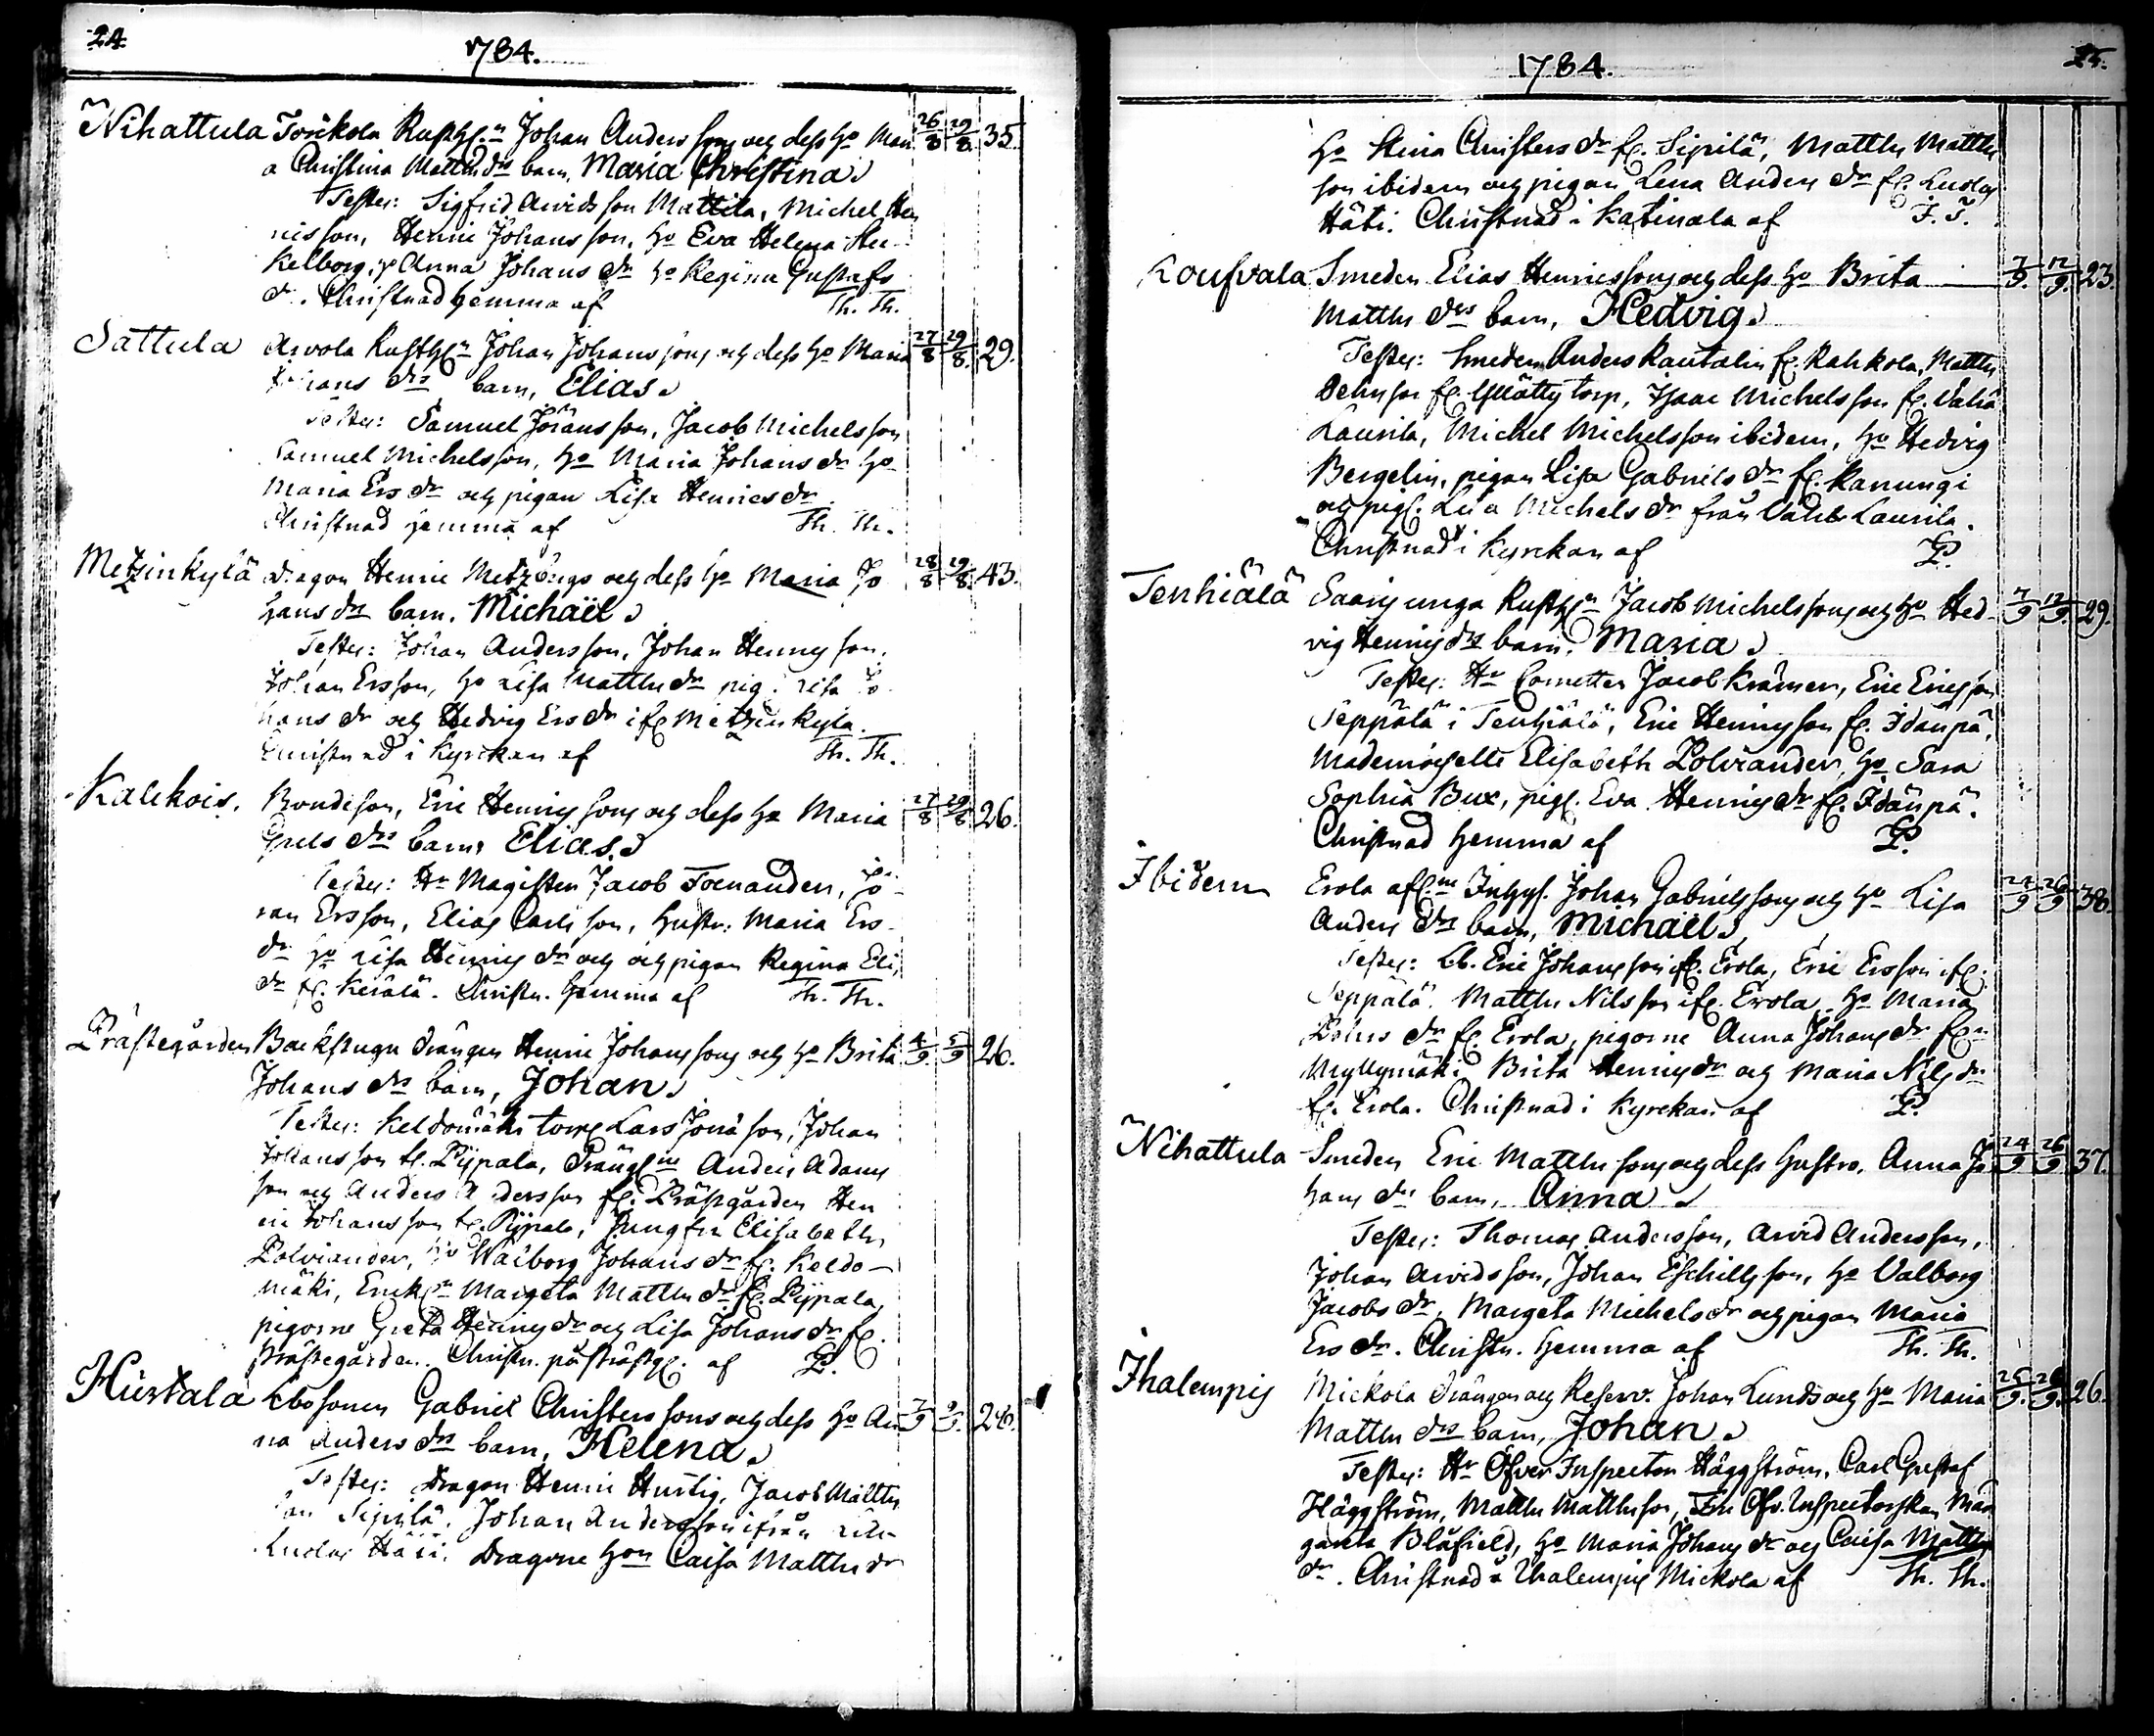 24.
1784.
Nihattula Torikola Rusth.n Johan Anderssons och dess ho Mari 26/8 29/8 35.
a Christina Matths drs barn, Maria Christina.
Testes: Sigfrid Arvidsson Mattila, Michel Hen
ricsson, Henric Johansson, ho Eva Helena
kelborg, po Anna Johans dr ho Regina Gustafs
dr. Christnad hemma af Th. Th.
Sattula Arvola Rusth.n Johan Johanssons och dess ho Maria 27/8 29/8 29.
Johans drs barn, Elias.
Testes: Samuel Jöransson, Jacob Michelsson
Samuel Michelsson, ho Maria Johans dr ho
Maria Ers dr och pigan Lisa Henrics dr.
Christnad hemma af Th. Th.
Metzinkylä Dragon Henric Metzbergs och dess ho Maria Jo 28/8 29/8 43.
hans drs barn, Michaël.
Testes: Johan Andersson, Johan Henricsson,
Johan Ersson, ho Lisa Matths dr pig. Lisa Jo
hans dr och Hedvig Ers dr ifr. Metzinkylä.
Christnad i Kyrckan af Th. Th.
Kalckois. Bondeson, Eric Henricssons och dess ho Maria 27/8 29/8 26.
Grels drs barn, Elias.
Testes: Hr Magister Jacob Fornander, Jö
ran Ersson, Elias Carlsson, hustr. Maria Ers
dr ho Lisa Henrics dr och och pigan Regina Eli
dr fr. Kerälä. Christn. hemma af Th. Th.
Prästegården Backstugu drängen Henric Johanssons och ho Brita 4/9. 5/9 26.
Johans drs barn, Johan.
Testes: Keldomäki torp. Lars Jonasson, Johan
Johansson fr. Pijpala, Drängne Anders Adams
son och Anders Andersson fr. Prästgården Hen
ric Johansson fr. Pijpala, Jungfru Elisabeth
Polviander, ho Walborg Johans dr fr. Keldo-
mäki, Enk.n Margeta Matths dr fr. Pijpala,
pigorne Greta Henrics dr och Lisa Johans dr fr.
Prästegården. Christn. på Prästg. af P.
Hurtala Lbosonen Gabriel Christerssons och dess ho An 7/9 9/9. 26.
na Anders drs barn, Helena.
Testes: Dragon Henric Hurtig, Jacob Matths
son Sipilä, Johan Andersson ifrån
Ludas Häti, Dragone hon Caisa Matths dr
25.
1784.
ho Stina Christers dr fr. Sipilä, Matths Matths
son ibidem och pigan Lena Anders dr fr. Ludas
Häti. Christnad i Katinala af J. T.
Koufvala Smeden Elias Henricssons och dess ho Brita 7/9. 12/9. 23.
Matths drs barn, Hedvig.
Testes: Smeden Anders Rautalin fr. Rahkola, Matths
fr. torp, Isaac Michelsson fr. Vähä
Laurila, Michel Michelsson ibidem, ho Hedvig
Bergelin, pigan Lisa Gabriels dr fr. Kanungi
och pig. Lisa Michels dr från Vähä Laurila.
Christnad i Kyrckan af P.
Tenhiälä Saarijunga Rusth.n Jacob Michelssons och ho Hed- 7/9 12/9. 29.
vig Henrics drs barn, Maria.
Testes: Hr Cornetten Jacob Krämer, Eric Ericsson
Seppälä i Tenhiälä, Eric Henricsson fr. Idänpä,
Mademoiselle Elisabeth Polviander, ho Sara
Sophia Bux, pig. Eva Henrics dr fr. Idänpä.
Christnad hemma af P.
Ibidem Erola afl.ne Inhys. Johan Gabrielssons och ho Lisa 24/9 26/9 38.
Anders drs barn, Michaël.
Testes: Lb. Eric Johansson ifr. Erola, Eric Ersson ifr.
Seppälä. Matths Nilsson ifr. Erola, ho Maria
dr fr. Erola, pigorne Anna Johans dr från
Myllymäki Brita Henrics dr och Maria Nils dr
fr. Erola. Christnad i Kyrckan af P.
Nihattula Smeden Eric Matthssons och dess hustro, Anna Jo 24/9 26/9 37.
hans drs barn, Anna.
Testes: Thomas Andersson, Arvid Andersson,
Johan Arvidsson, Johan Eschillsson, ho Valborg
Jacobs dr, Margeta Michels dr och pigan Maria
Ers dr. Christn. hemma af Th. Th.
Ihalempis Mickola drängen och Reserv. Johan Lunds och ho Maria 25/9. 26/9. 26.
Matths drs barn, Johan.
Testes: Hr Öfver Inspector Häggström, Carl Gustaf
Häggström, Matths Matthsson, Fru Öfv. Inspectorskan Mar
gareta Blåfield, ho Maria Johans dr och Caisa Matths
dr. Christnad i Ihalempis Mickola af Th. Th.